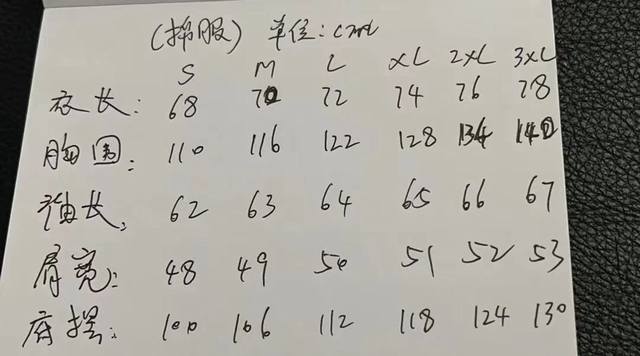 (棉服) 单位:cm
S M L XL 2XL 3XL
衣长: 68 70 72 74 76 78
胸围: 110 116 122 128 134 140
袖长: 62 63 64 65 66 67
肩宽: 48 49 50 51 52 53
底摆: 100 106 112 118 124 130